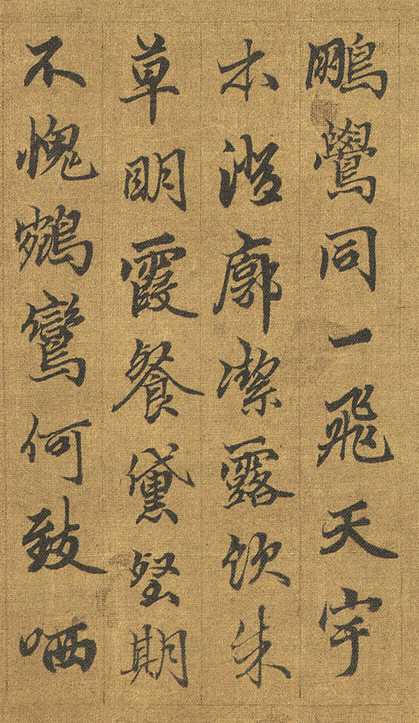 鵬鷽同一飛天宇
本澄廓潔露飲朱
草明霞餐黛壑期
不愧鵷鸞何致哂